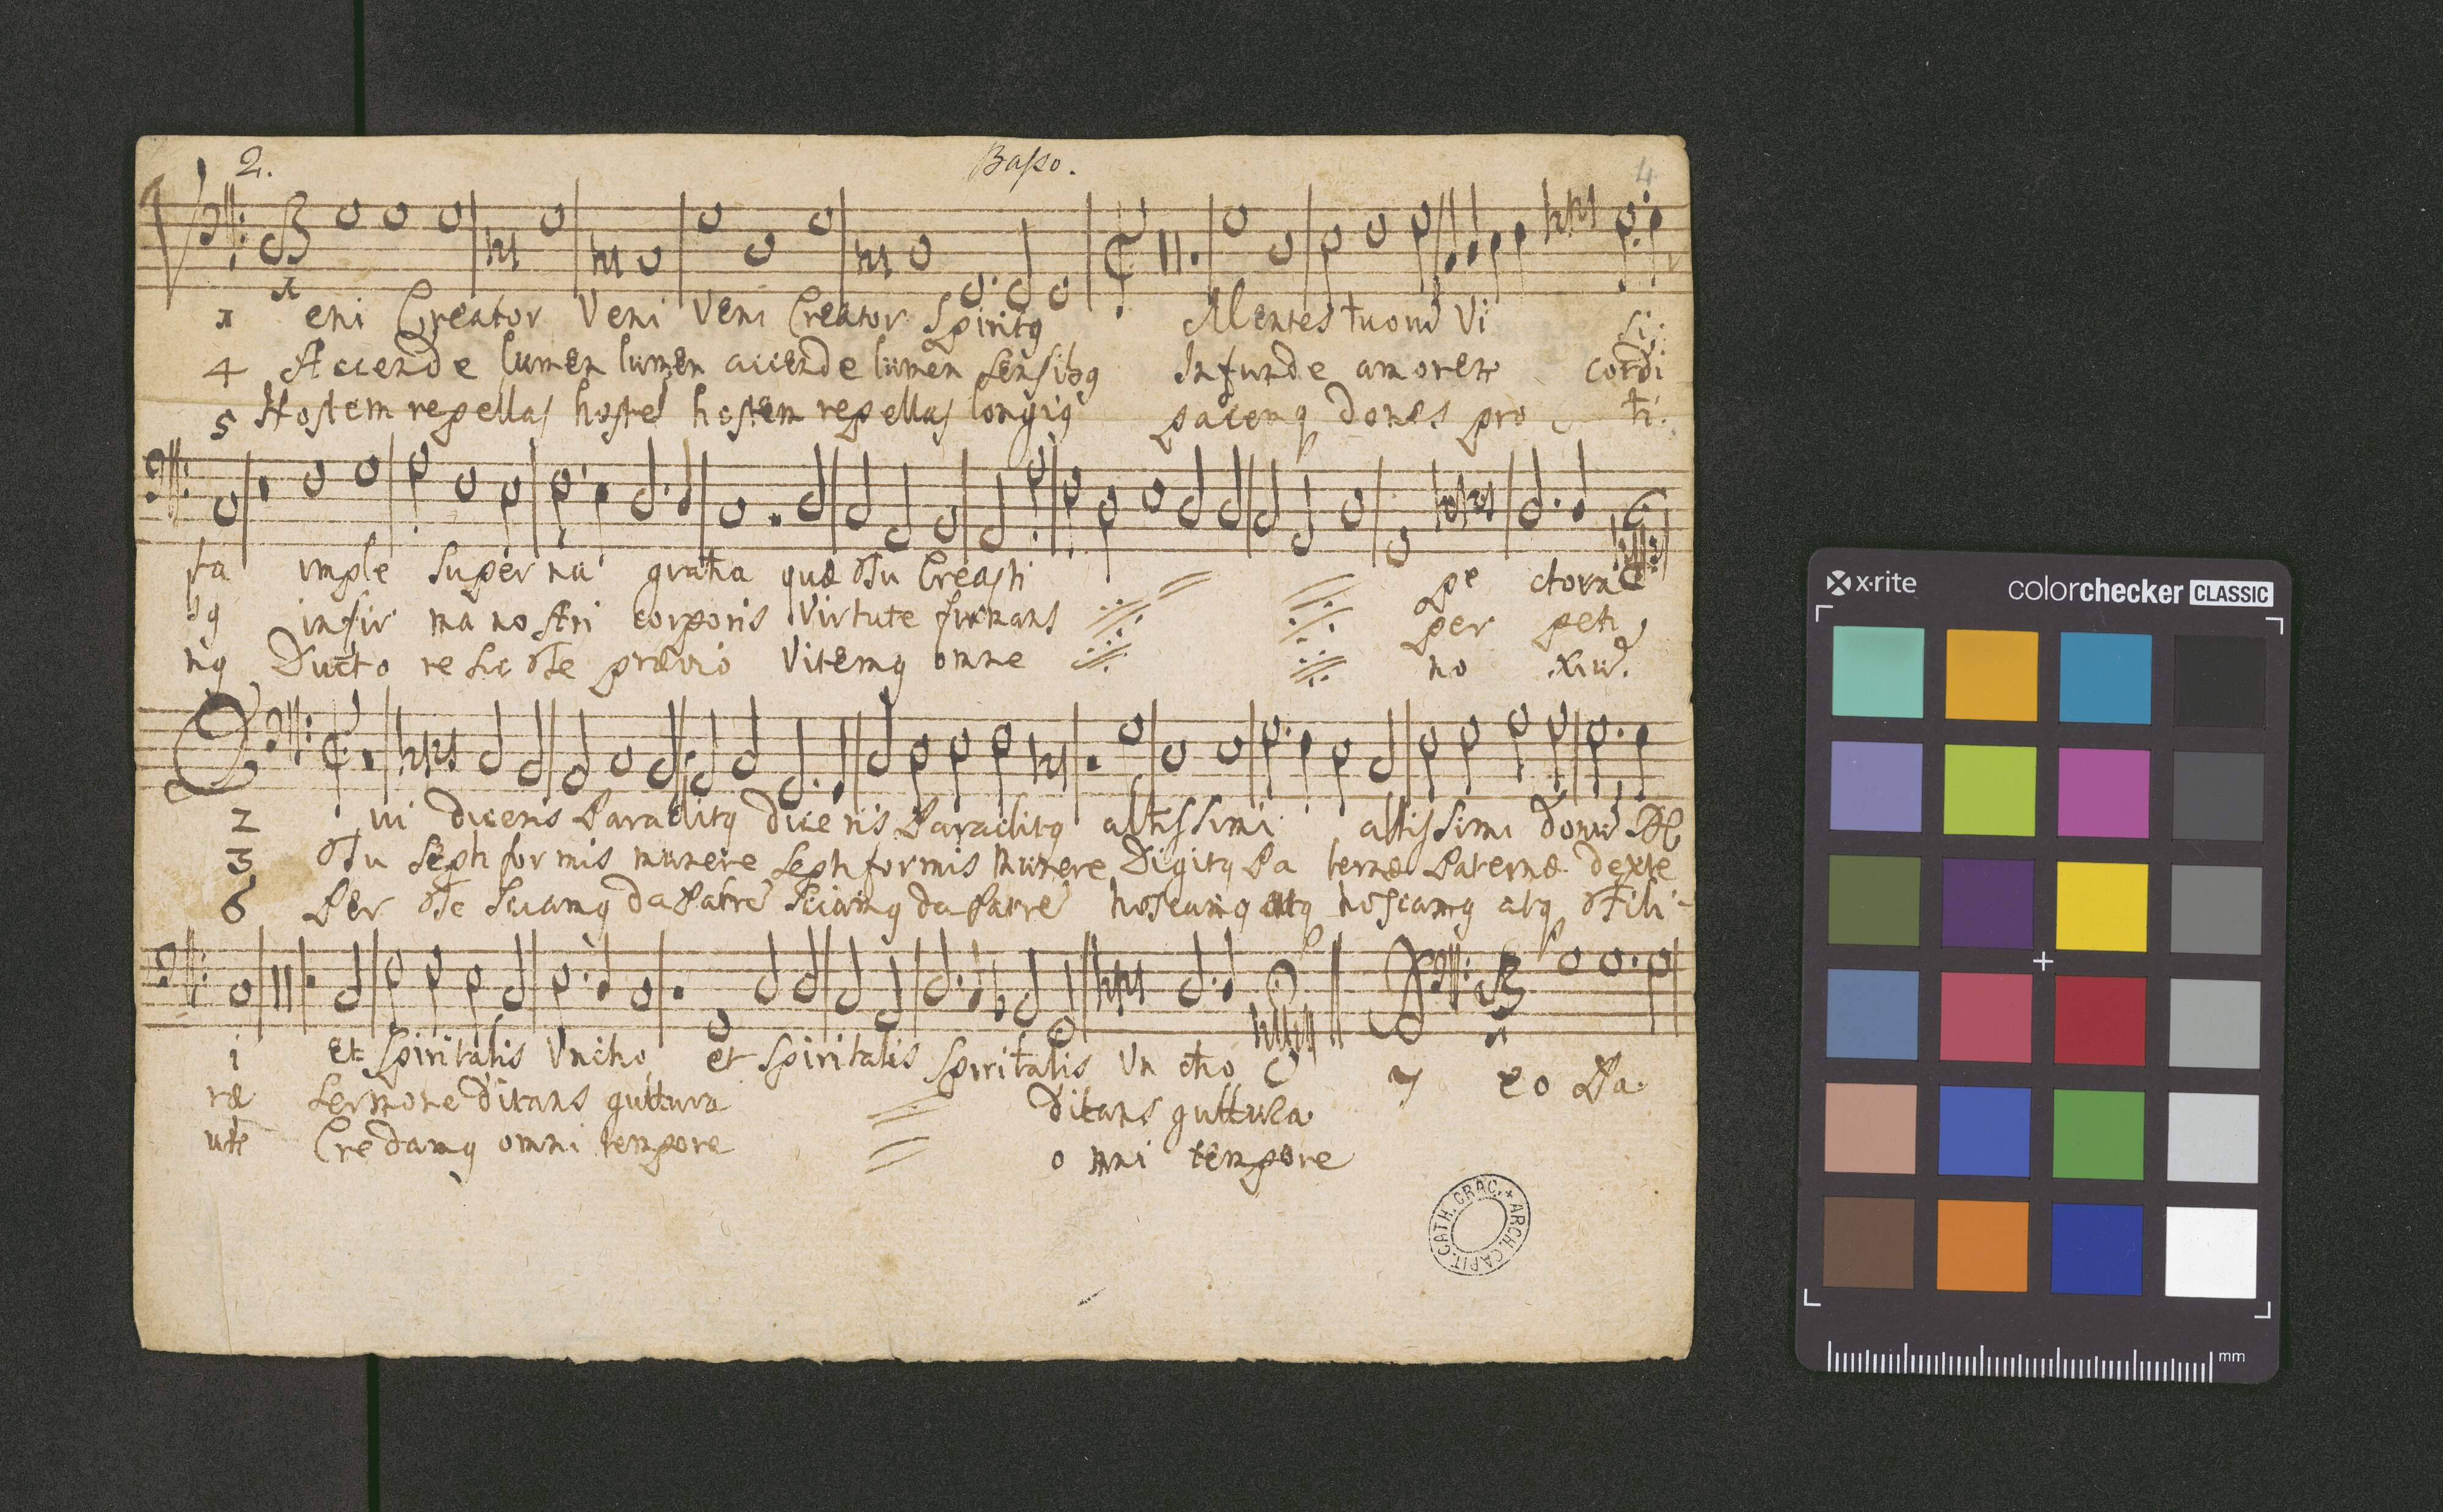 2. Basso. 4
V
1 eni Creator Veni Veni Creator Spiritꝯ Mentes tuorum Vi si:
4 Accende lumen lumen accende lumen Sensibꝯ Infunde amorem cordi
5 Hostem repellas hostem hostem repellas longiꝯ pacemq dones pro ti:
ta imple superna gratia quæ Tu Creasti pe ctora
bꝯ infir ma nostri corporis Virtute firmans per peti
nꝯ Ducto re sic Te prævio Vitemꝯ omne no xium.
Q
2 ui diceris Paraclitꝯ diceris Paraclitꝯ altissimi altissimi donum De
3 Tu Septi formis munere Septiformis Munere Digitꝯ Pa ternæ Paternæ dexte
6 Per Te Sciamꝯ da Patrem Sciamꝯ da Patrem noscamꝯ atq noscamꝯ atq Fili-
i et Spiritalis Unctio et Spiritalis Spiritalis Un ctio
7 eo Pa
ræ Sermone Ditans guttura Ditans guttura
Credamꝯ omni tempore omni tempore
ARCH. CAPIT. CATH. CRAC. +
x-rite
colorchecker CLASSIC
mm